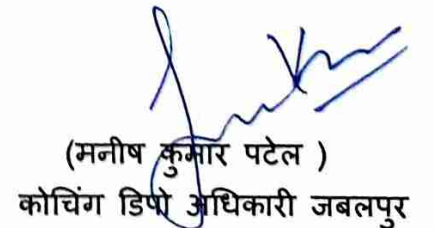 (मनीष कुमार पटेल )
कोचिंग डिपो अधिकारी जबलपुर